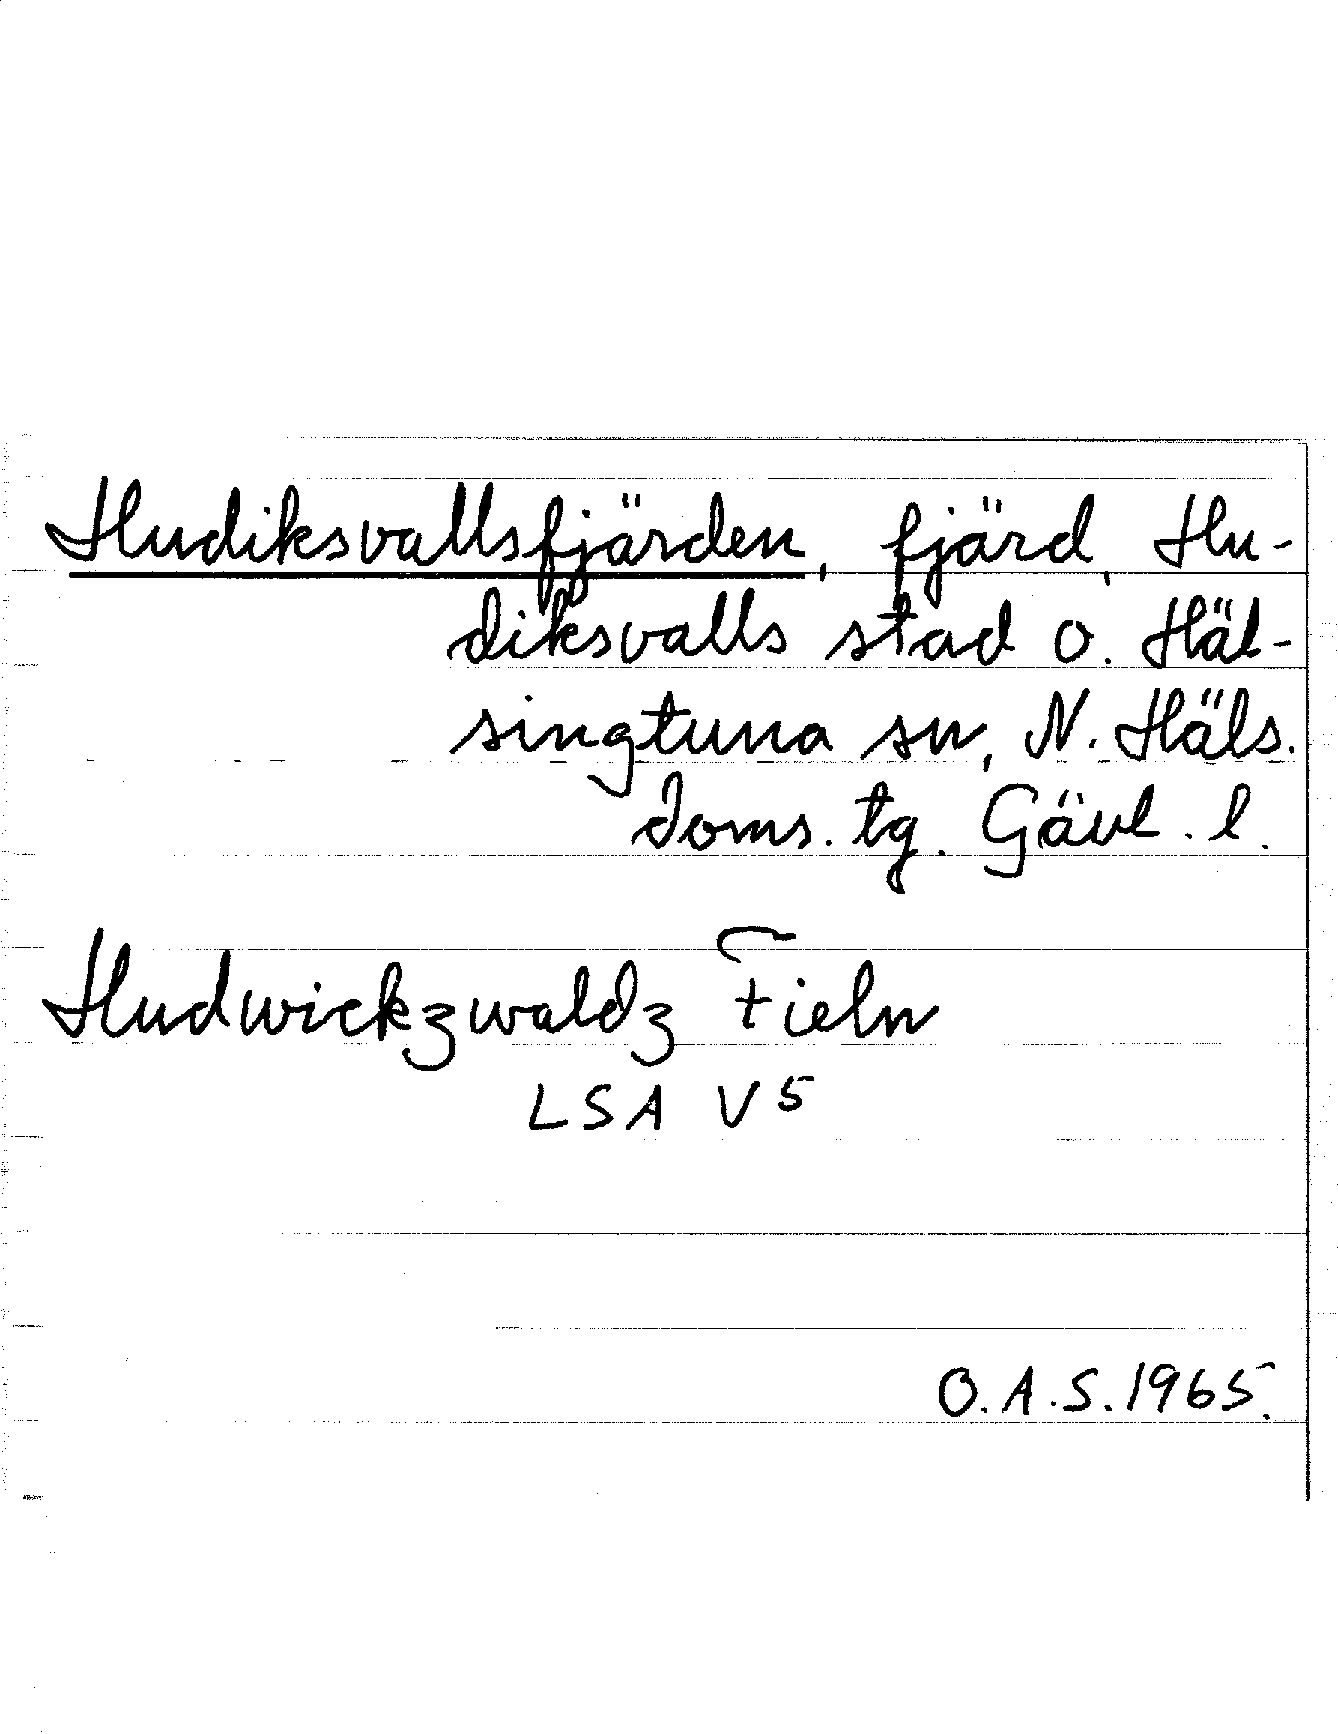 Hudiksvallsfjärden, fjärd, Hu-
diksvalls stad o. Häl-
singtuna sn, N. Häls.
doms. tg. Gävl. l.
Hudwickzwaldz Fieln
LSA V 5
O.A.S. 1965.